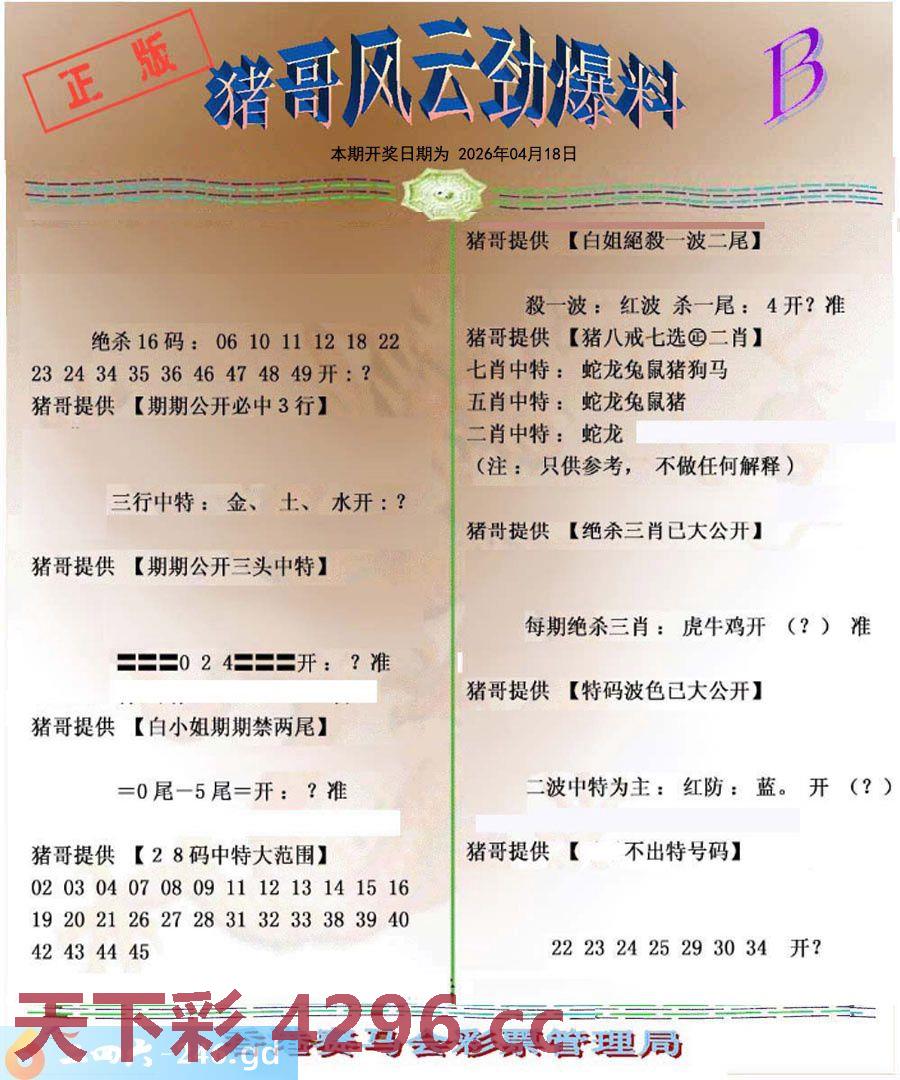 正版
猪哥风云劲爆料
B
本期开奖日期为 2026年04月18日
绝杀16码：06 10 11 12 18 22
23 24 34 35 36 46 47 48 49开：？
猪哥提供 【期期公开必中3行】
三行中特：金、土、水开：？
猪哥提供 【期期公开三头中特】
〓〓〓0 2 4〓〓〓开：？准
猪哥提供 【白小姐期期禁两尾】
=0尾－5尾＝开：？准
猪哥提供 【28码中特大范围】
02 03 04 07 08 09 11 12 13 14 15 16
19 20 21 26 27 28 31 32 33 38 39 40
42 43 44 45
猪哥提供 【白姐絕殺一波二尾】
殺一波：红波 杀一尾：4开？准
猪哥提供 【猪八戒七选㊣二肖】
七肖中特：蛇龙兔鼠猪狗马
五肖中特：蛇龙兔鼠猪
二肖中特：蛇龙
（注：只供参考，不做任何解释)
猪哥提供 【绝杀三肖已大公开】
每期绝杀三肖：虎牛鸡开（？）准
猪哥提供 【特码波色已大公开】
二波中特为主：红防：蓝。开（？）
猪哥提供 【 不出特号码】
22 23 24 25 29 30 34 开?
天下彩 4296.cc
马会彩票管理局